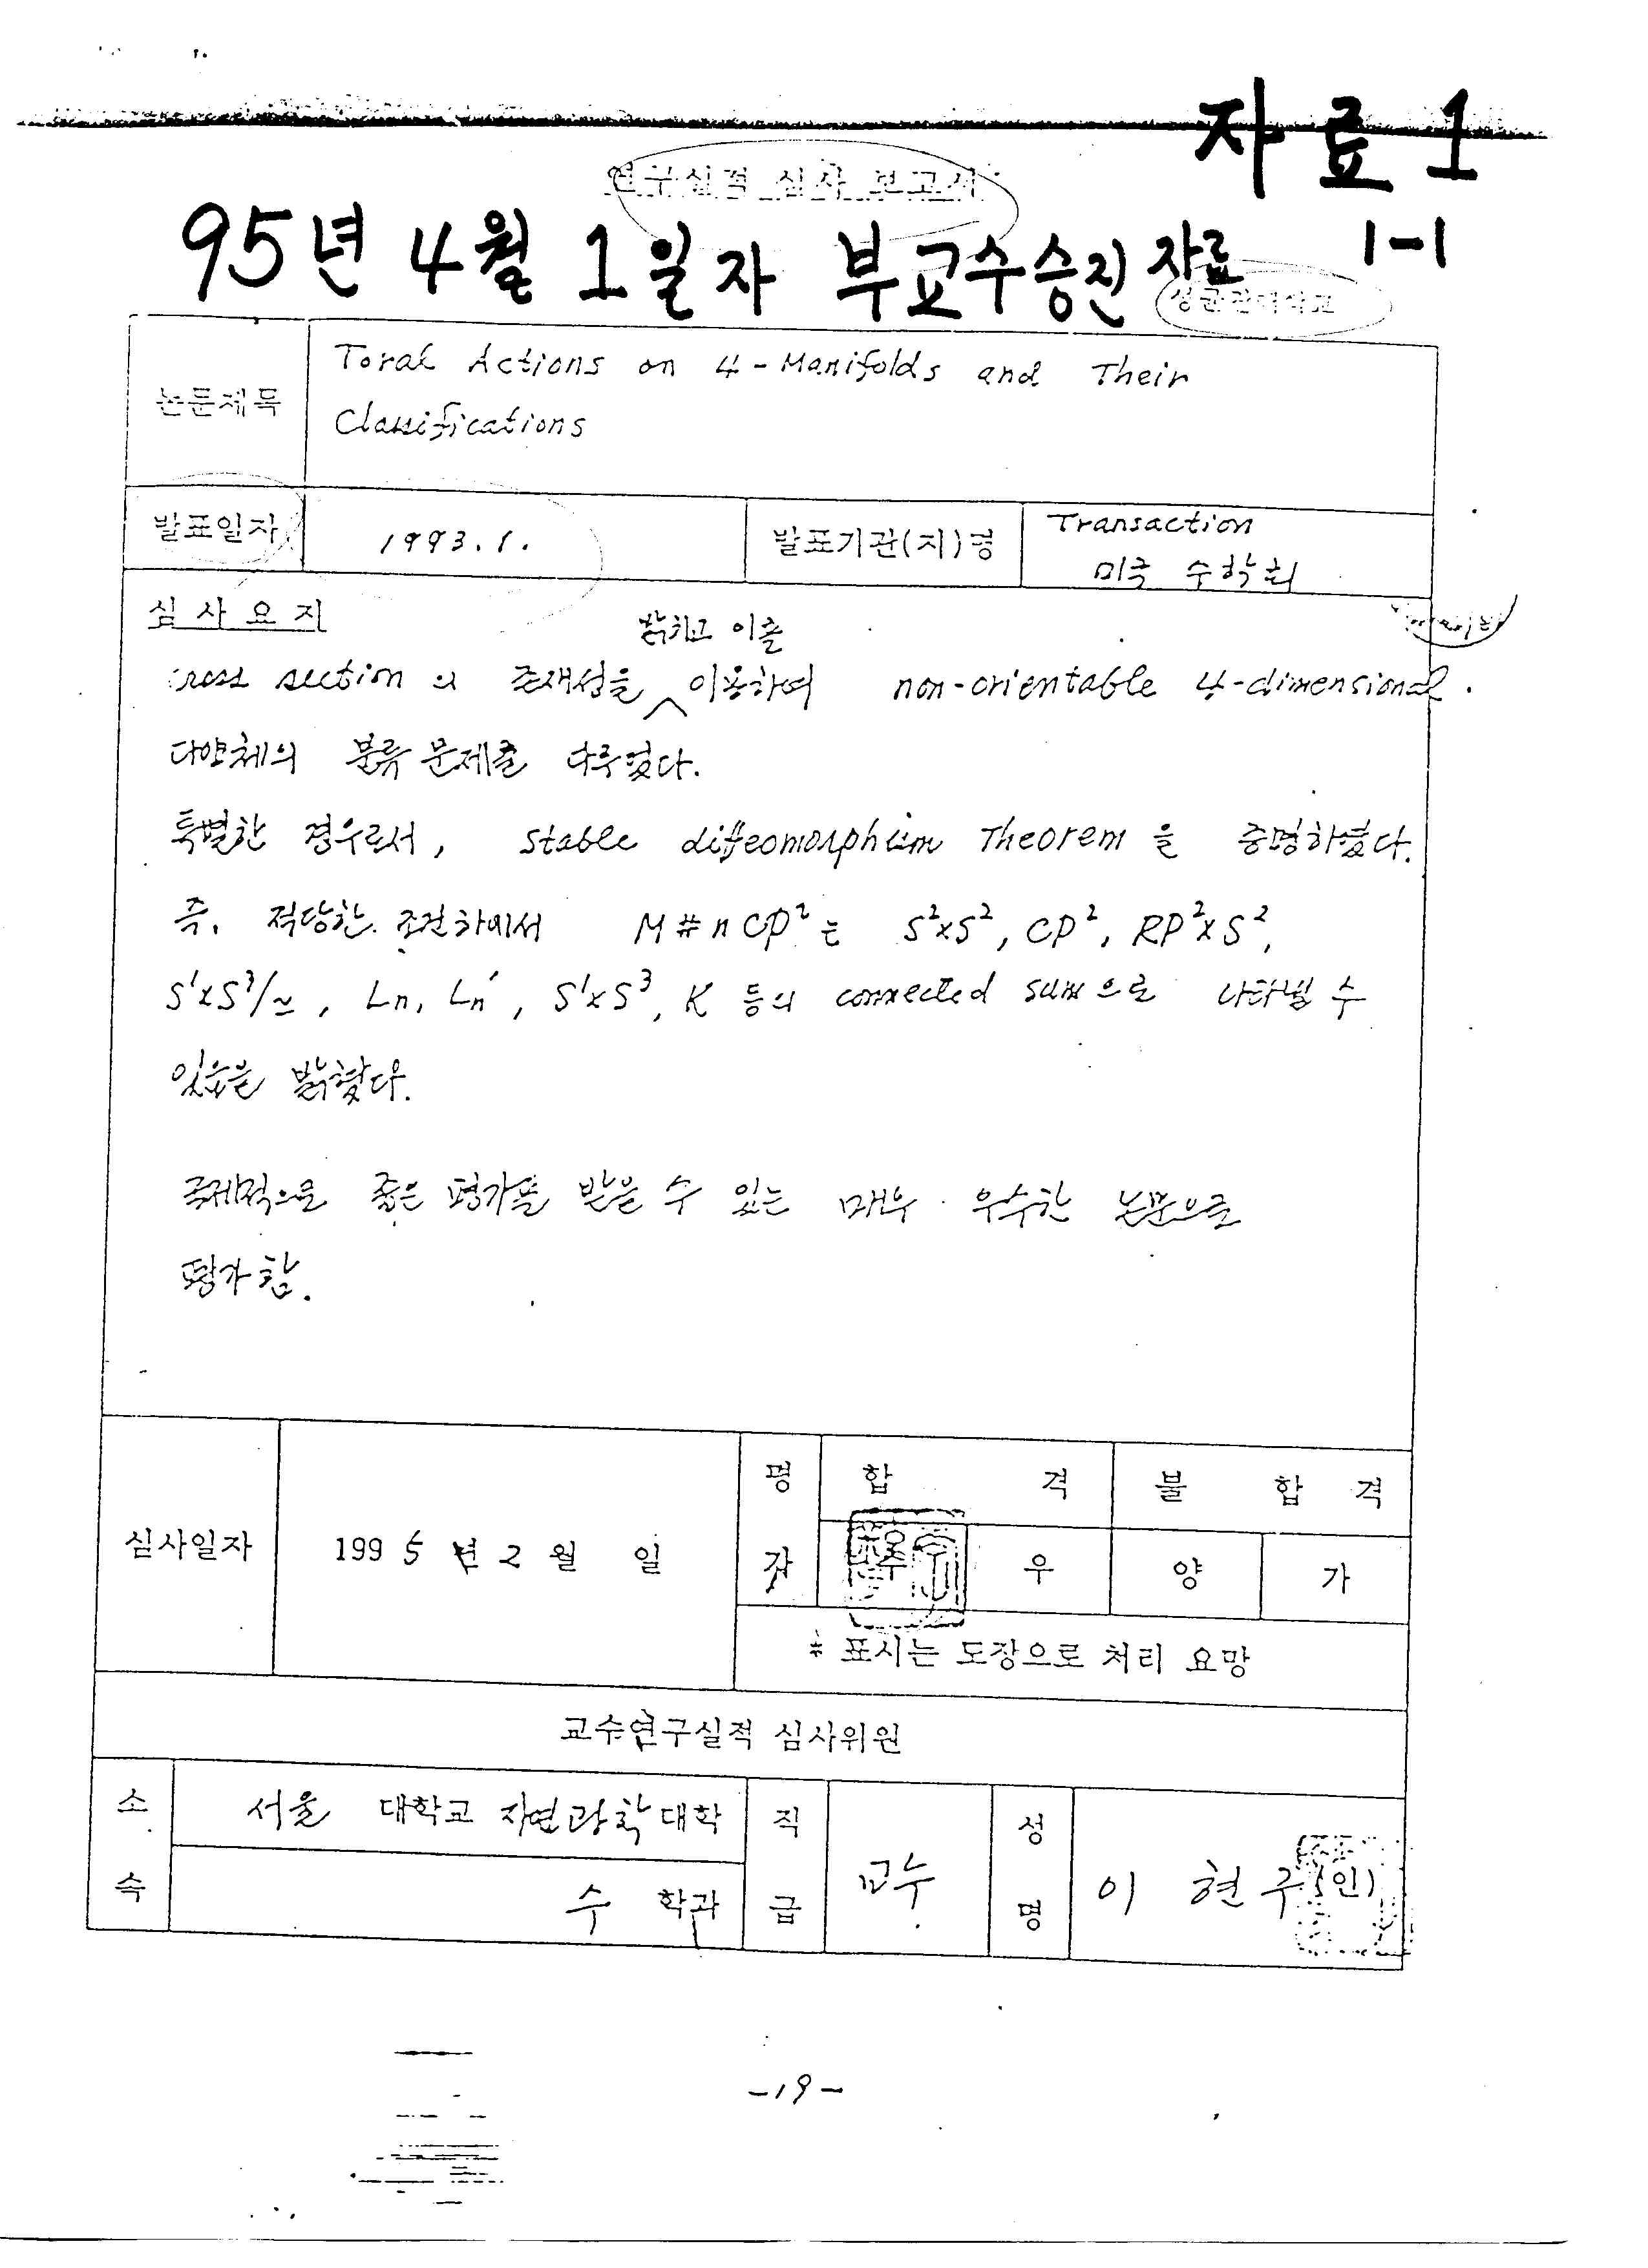 자료 1
연구실적 심사 보고서
95년 4월 1일자 부교수승진 자료 1-1
성균관대학교
논문제목
Toral Actions on 4-Manifolds and Their
Classifications
발표일자 1993.1. 발표기관(지)명 Transaction
미국 수학회
심사요지
밝히고 이를
cross section의 존재성을 이용하여 non-orientable 4-dimensional
다양체의 분류 문제를 다루었다.
특별한 경우로서, stable diffeomorphism Theorem을 증명하였다.
즉, 적당한 조건하에서 M # n CP²는 S²xS², CP², RP²xS²,
S¹xS³/≃, Ln, Ln´, S¹xS³, K 등의 connected sum으로 나타낼 수
있음을 밝혔다.
국제적으로 좋은 평가를 받을 수 있는 매우 우수한 논문으로
평가함.
심사일자 1995년 2월 일
평가
합격 불합격
수 우 양 가
* 표시는 도장으로 처리 요망
교수연구실적 심사위원
소속 서울 대학교 자연과학 대학
수 학과
직급 교수
성명 이 현 구 (인)
-19-